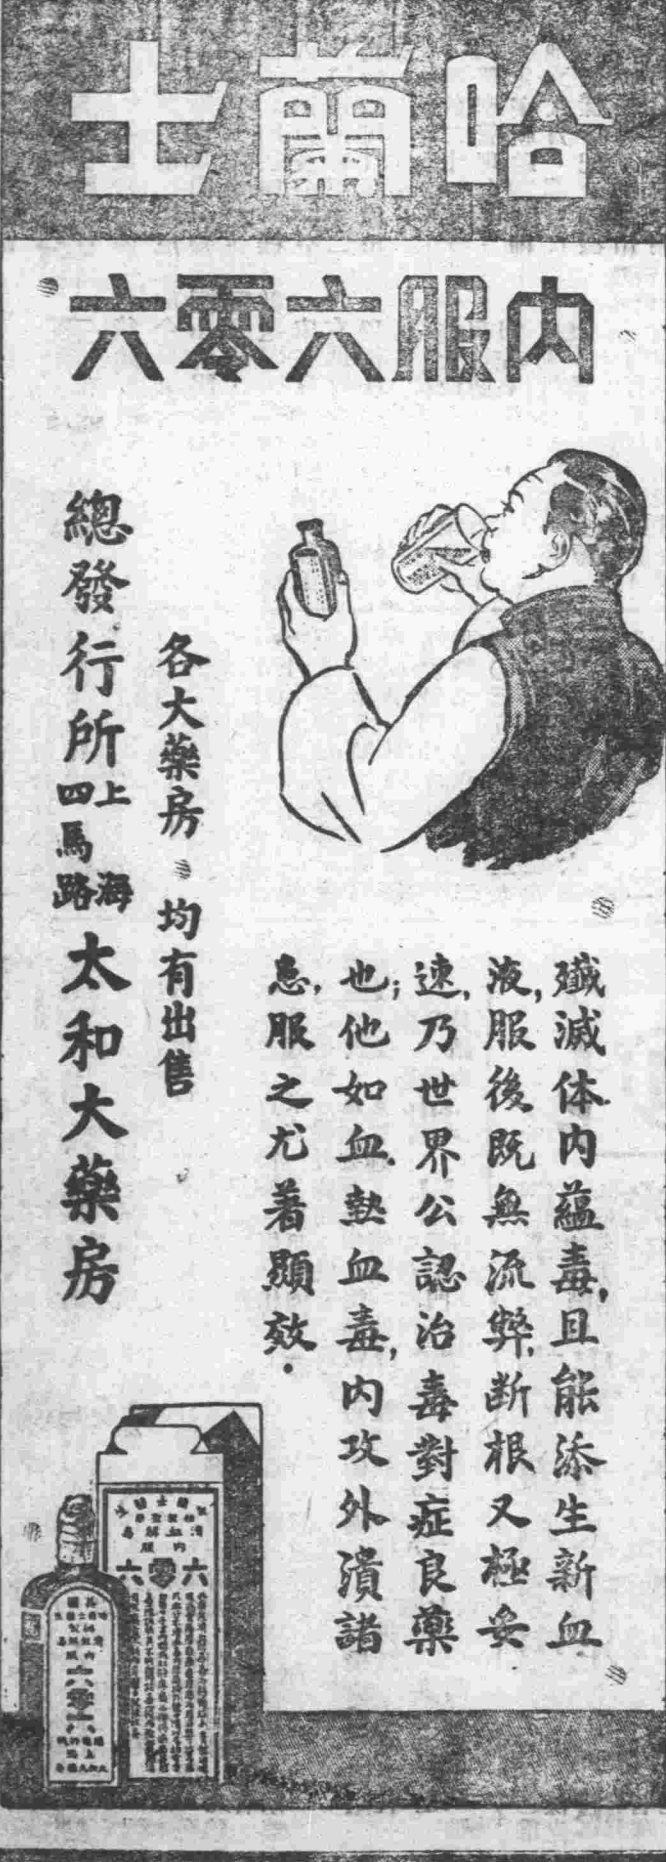 哈蘭士
內服六零六
殲滅体內蘊毒,且能添生新血
液,服後既無流弊,断根又極妥
速,乃世界公認治毒對症良藥
也;他如血熱血毒,內攻外潰諸
患,服之尤著顯效.
各大藥房均有出售
總發行所 上海四馬路 太和大藥房
清血解毒
內服
六零六
內服
六零六